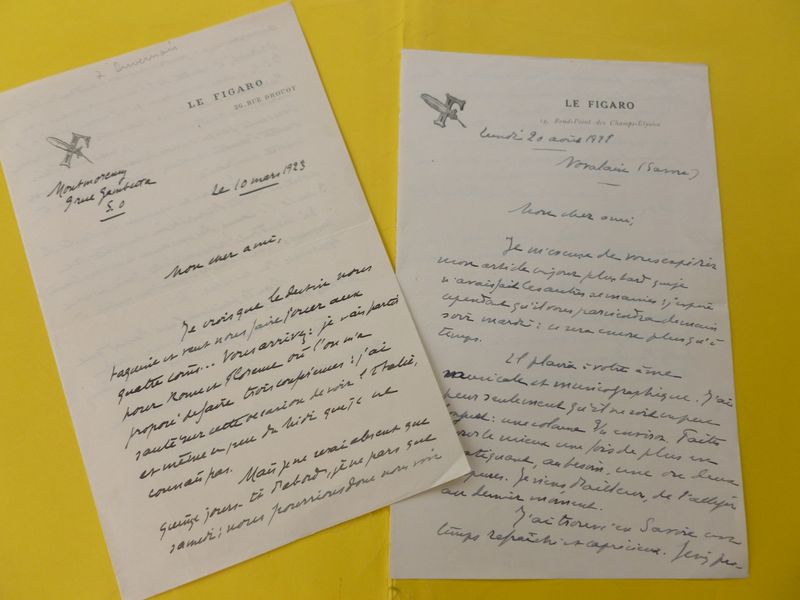 LE FIGARO
26, RUE DROUOT
Montmorency
9 rue Gambetta
S. O
le 10 mars 1923
Mon cher ami,
Je crois que le destin nous
taquine et veut nous faire jouer aux
quatre coins... Vous arrivez : je vais partir
pour Rome et Florence où l'on m'a
proposé de faire trois conférences : j'ai
sauté sur cette occasion de voir l'Italie,
et même un peu du Midi que je ne
connais pas.
Mais je ne serai absent que
quinze jours. Et d'abord, je ne pars que
samedi ; nous pourrions donc nous voir
LE FIGARO
14, Rond-Point des Champs-Elysées
Lundi 20 août
Novalaise (Savoie)
Mon cher ami,
Je m'excuse de vous expédier
mon article un jour plus tard que je
n'avais fait les autres semaines : j'espère
cependant qu'il vous parviendra demain
soir mardi : ce sera encore plus qu'à
temps.
Il plaira à votre âme
musicale et musicographique. J'ai
peur seulement qu'il ne soit un peu
: une colonne 3/4 environ. Faites
pour le mieux une fois de plus en
, au besoin, une ou deux
. Je viens d'ailleurs de l'alléger
au dernier moment.
J'ai trouvé en Savoie un
temps rafraîchi et capricieux. Je